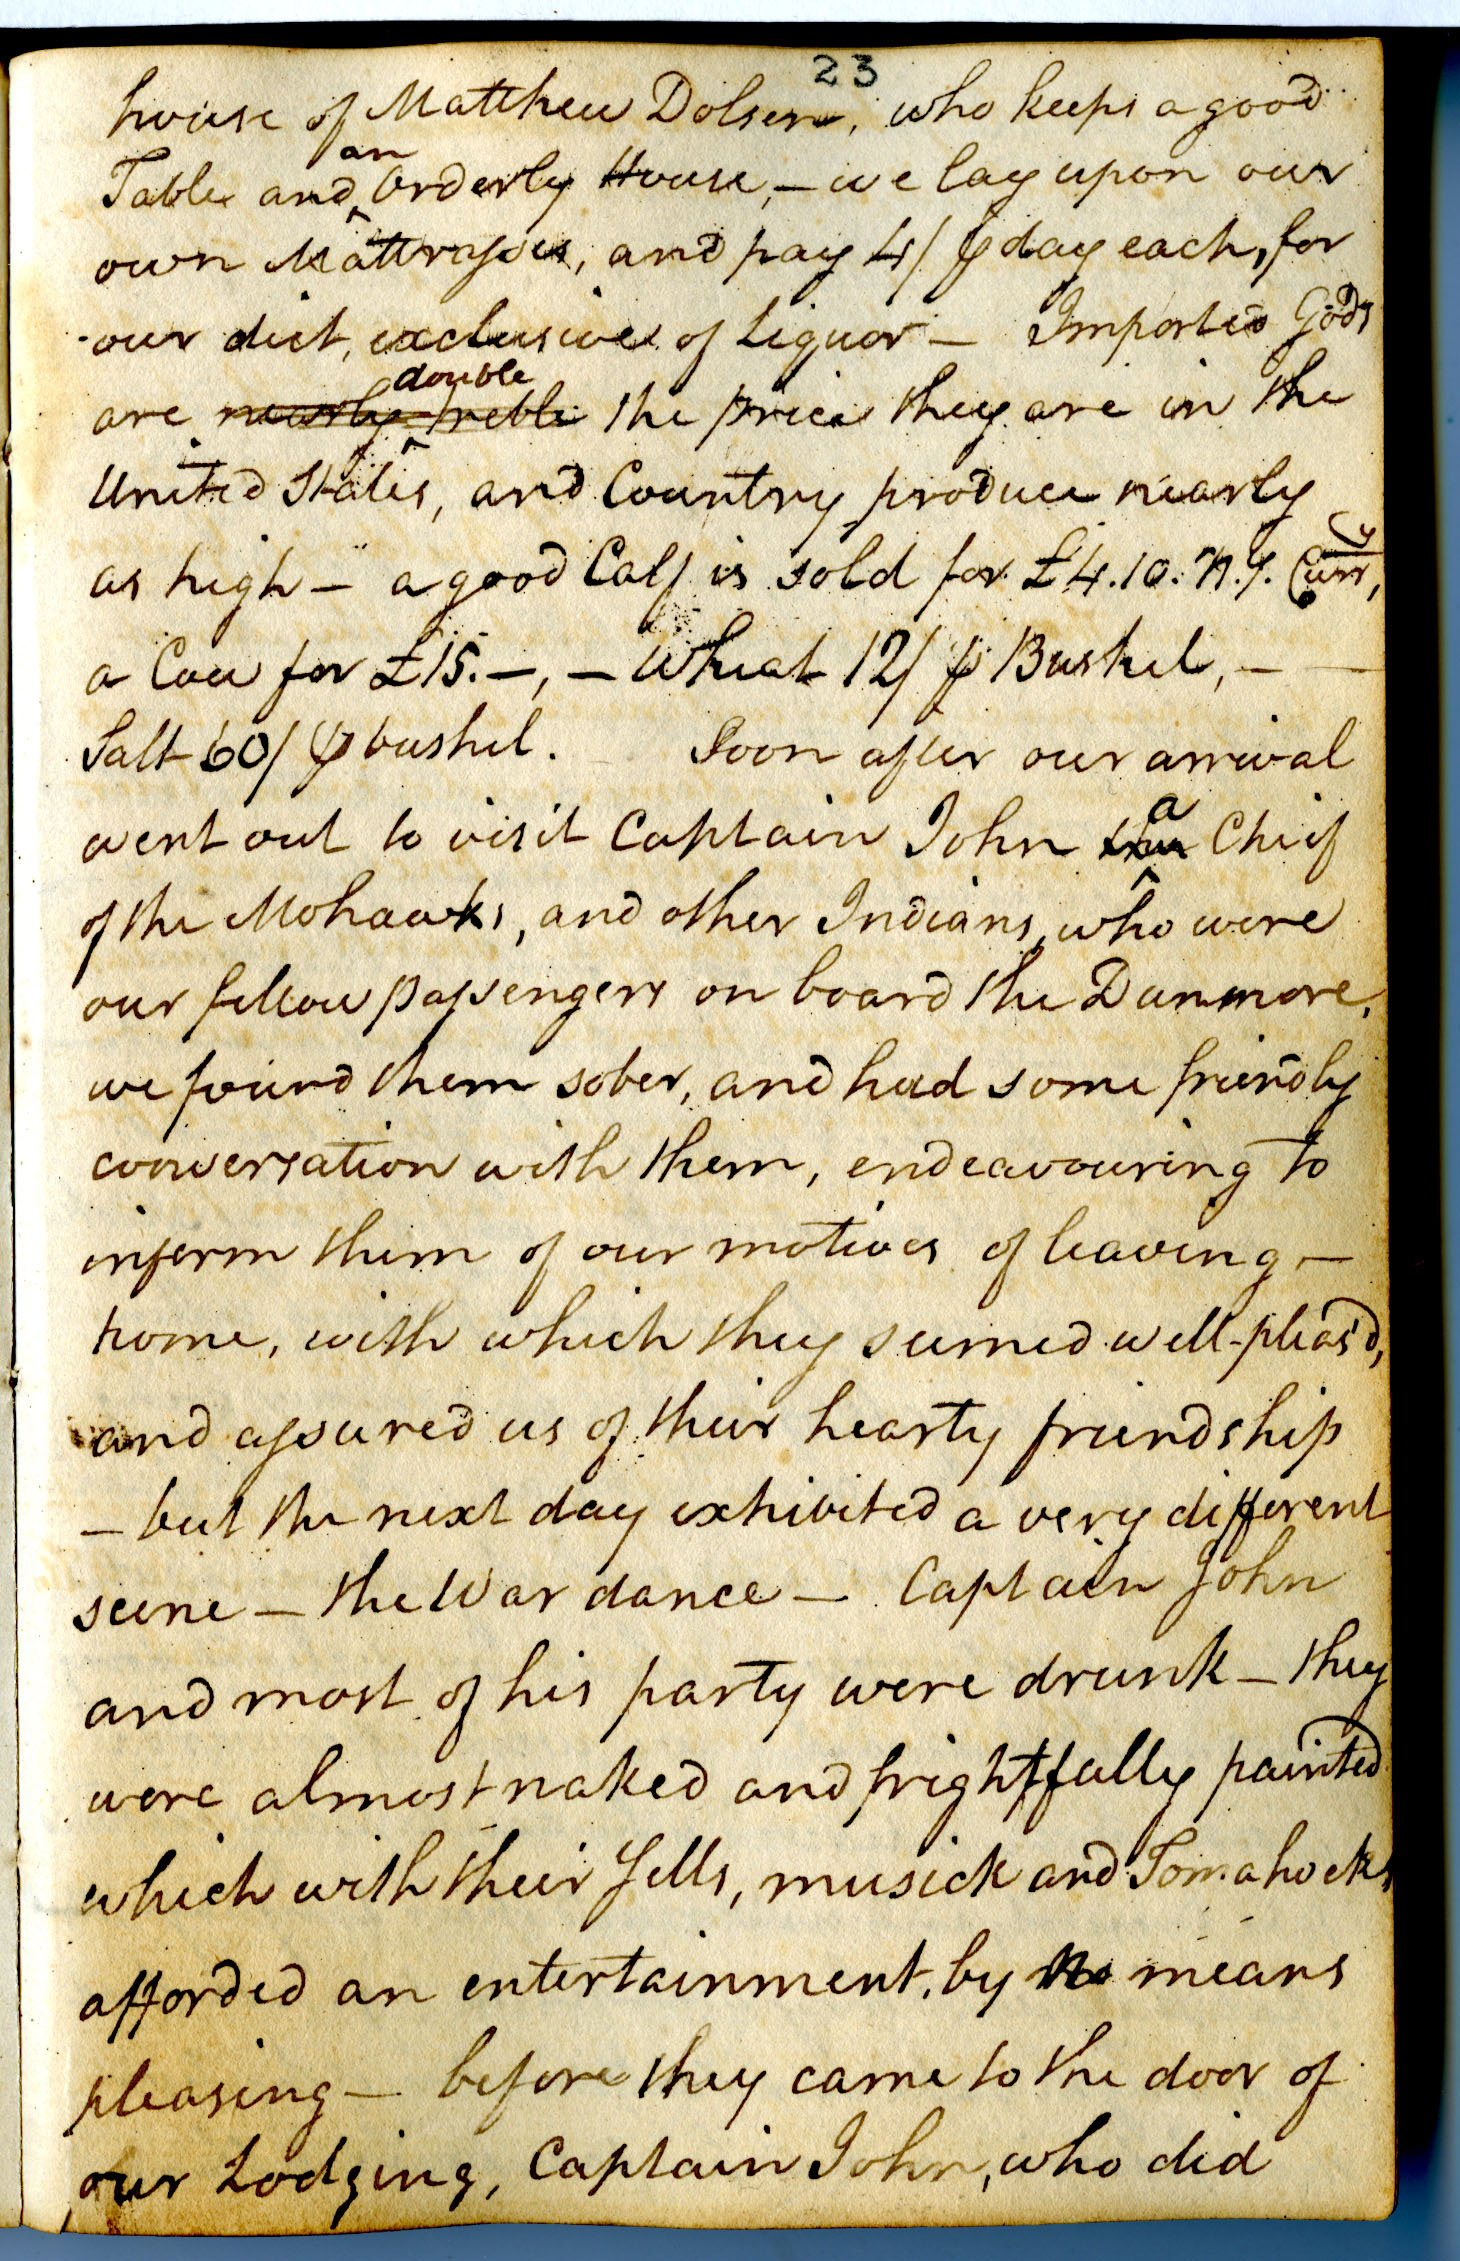 23
house of Matthew Dolsen, who keeps a good
Table and an Orderly House, – we lay upon our
own Mattrasses, and pay 4/ ⅌ day each, for
our diet, exclusive of Liquor – Imported Goods
are nearly treble double the price they are in the
United States, and Country produce nearly
as high – a good Calf is sold for £4.10. N.Y. Curry,
a Cow for £15.–, – Wheat 12/ ⅌ Bushel, –
Salt 60/ ⅌ bushel. Soon after our arrival
went out to visit Captain John a Chief
of the Mohawks, and other Indians, who were
our fellow passengers on board the Dunmore,
we found them sober, and had some friendly
conversation with them, endeavouring to
inform them of our motives of leaving –
home, with which they seemed well-pleas'd,
and assured us of their hearty friendship
– but the next day exhibited a very different
scene – the War dance – Captain John
and most of his party were drunk – they
were almost naked and frightfully painted
which with their Yells, musick and Tomahocks,
afforded an entertainment, by no means
pleasing – before they came to the door of
our Lodging, Captain John, who did